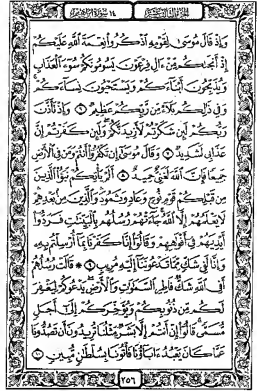 الجزء الثالث عشر ١٤ سورة إبراهيم
وَإِذْ قَالَ مُوسَىٰ لِقَوْمِهِ ٱذْكُرُوا۟ نِعْمَةَ ٱللَّهِ عَلَيْكُمْ
إِذْ أَنجَىٰكُم مِّنْ ءَالِ فِرْعَوْنَ يَسُومُونَكُمْ سُوٓءَ ٱلْعَذَابِ
وَيُذَبِّحُونَ أَبْنَآءَكُمْ وَيَسْتَحْيُونَ نِسَآءَكُمْ
وَفِى ذَٰلِكُم بَلَآءٌ مِّن رَّبِّكُمْ عَظِيمٌ ٦ وَإِذْ تَأَذَّنَ
رَبُّكُمْ لَئِن شَكَرْتُمْ لَأَزِيدَنَّكُمْ وَلَئِن كَفَرْتُمْ إِنَّ
عَذَابِى لَشَدِيدٌ ٧ وَقَالَ مُوسَىٰٓ إِن تَكْفُرُوٓا۟ أَنتُمْ وَمَن فِى ٱلْأَرْضِ
جَمِيعًا فَإِنَّ ٱللَّهَ لَغَنِىٌّ حَمِيدٌ ٨ أَلَمْ يَأْتِكُمْ نَبَؤُا۟ ٱلَّذِينَ
مِن قَبْلِكُمْ قَوْمِ نُوحٍ وَعَادٍ وَثَمُودَ وَٱلَّذِينَ مِنۢ بَعْدِهِمْ
لَا يَعْلَمُهُمْ إِلَّا ٱللَّهُ جَآءَتْهُمْ رُسُلُهُم بِٱلْبَيِّنَٰتِ فَرَدُّوٓا۟
أَيْدِيَهُمْ فِىٓ أَفْوَٰهِهِمْ وَقَالُوٓا۟ إِنَّا كَفَرْنَا بِمَآ أُرْسِلْتُم بِهِۦ
وَإِنَّا لَفِى شَكٍّ مِّمَّا تَدْعُونَنَآ إِلَيْهِ مُرِيبٍ ٩ ۞ قَالَتْ رُسُلُهُمْ
أَفِى ٱللَّهِ شَكٌّ فَاطِرِ ٱلسَّمَٰوَٰتِ وَٱلْأَرْضِ يَدْعُوكُمْ لِيَغْفِرَ
لَكُم مِّن ذُنُوبِكُمْ وَيُؤَخِّرَكُمْ إِلَىٰٓ أَجَلٍ
مُّسَمًّى قَالُوٓا۟ إِنْ أَنتُمْ إِلَّا بَشَرٌ مِّثْلُنَا تُرِيدُونَ أَن تَصُدُّونَا
عَمَّا كَانَ يَعْبُدُ ءَابَآؤُنَا فَأْتُونَا بِسُلْطَٰنٍ مُّبِينٍ ١٠
٢٥٦